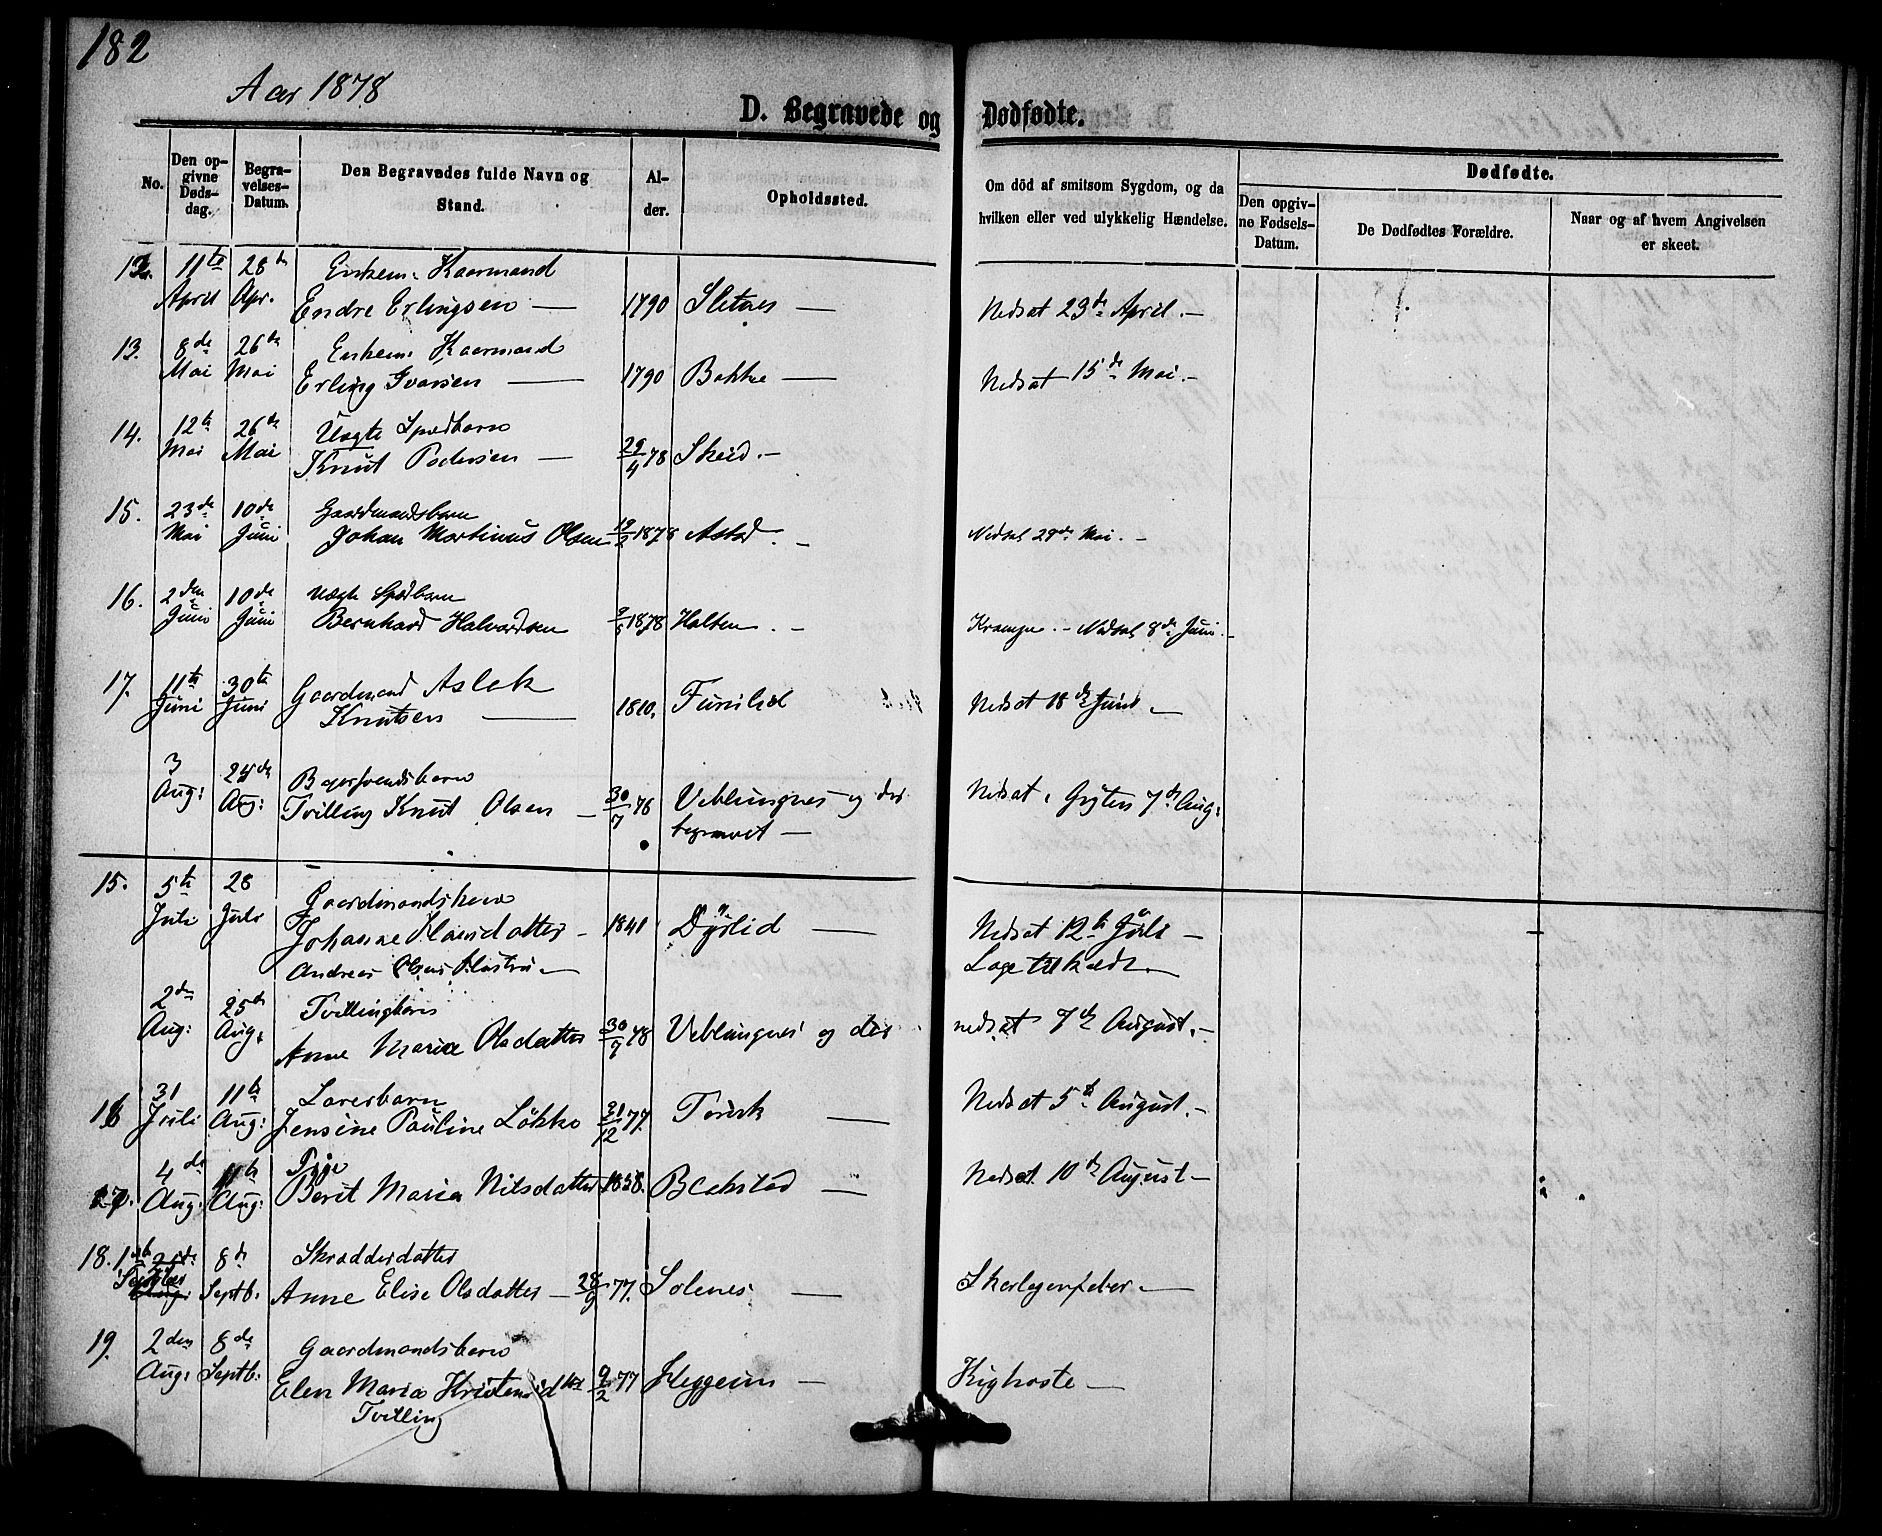 182
Aar 1878
D. Begravede og Dødfødte.
No.
Den opgivne Døds-dag.
Begravelses-Datum.
Den Begravedes fulde Navn og Stand.
Alder.
Opholdssted.
Om död af smitsom Sygdom, og da hvilken eller ved ulykkelig Hændelse.
Dødfødte.
Den opgivne Fødsels-Datum.
De Dødfødtes Forældre.
Naar og af hvem Angivelsen er skeet.
11te 28de Enkem. Kaarmand
April Apr. Endre Erlingsen — 1790 Sletnes — Nedsat 23de April. —
13. 8de 26de Enkem. Kaarmand
Mai Mai Erling Ivarsen — 1790 Bakke — Nedsat 15de Mai. —
14. 12te 26de Uægte Spædbarn
Mai Mai Knut Pedersen — 29/4 78 Skeid. —
15. 23de 10de Gaardmandsbarn
Mai Juni Johan Martinus Olsen 19/2 1878 Nedsat 29de Mai. —
16. 2den 10de Uægte Spædbarn
Juni Juni Bernhard Halvardsen 1878 Holten. — Krampe. — Nedsat 8de Juni. —
17. 11te 30te Gaardmand Aslak
Juni Juni Knutsen — 1810. Nedsat 18de Juni —
3
Aug: Aug: Tvilling Knut Olsen — 30/7 78 Veblungnes og der
begravet — Nedsat i Gryten 7de Aug:
15. 5te 28 Gaardmandskone
Juli Juli Johanne — 1841 Dyrlid — Nedsat 12te Juli —
Andreas
2den 25de Tvillingbarn
Aug: Aug: Anne Maria Olsdatter 30/7 78 Veblungnes og der nedsat 7de August. —
16 31 11te
Juli Aug: Jensine Pauline Løkke 31/12 77 Torvik — Nedsat 5te August. —
4de 11te Pige
Aug: Aug: Berit Maria Nilsdatter 1858. — Nedsat 10de August —
18. 1ste 8de Skrædderdatter
Septb. Anne Elise Olsdatter — 28/9 77. Solenes — Skarlagenfeber —
19. 2den 8de Gaardmandsbarn
Aug: Septb: Elen Maria 9/2 77 Heggeim — Kighoste —
Tvilling